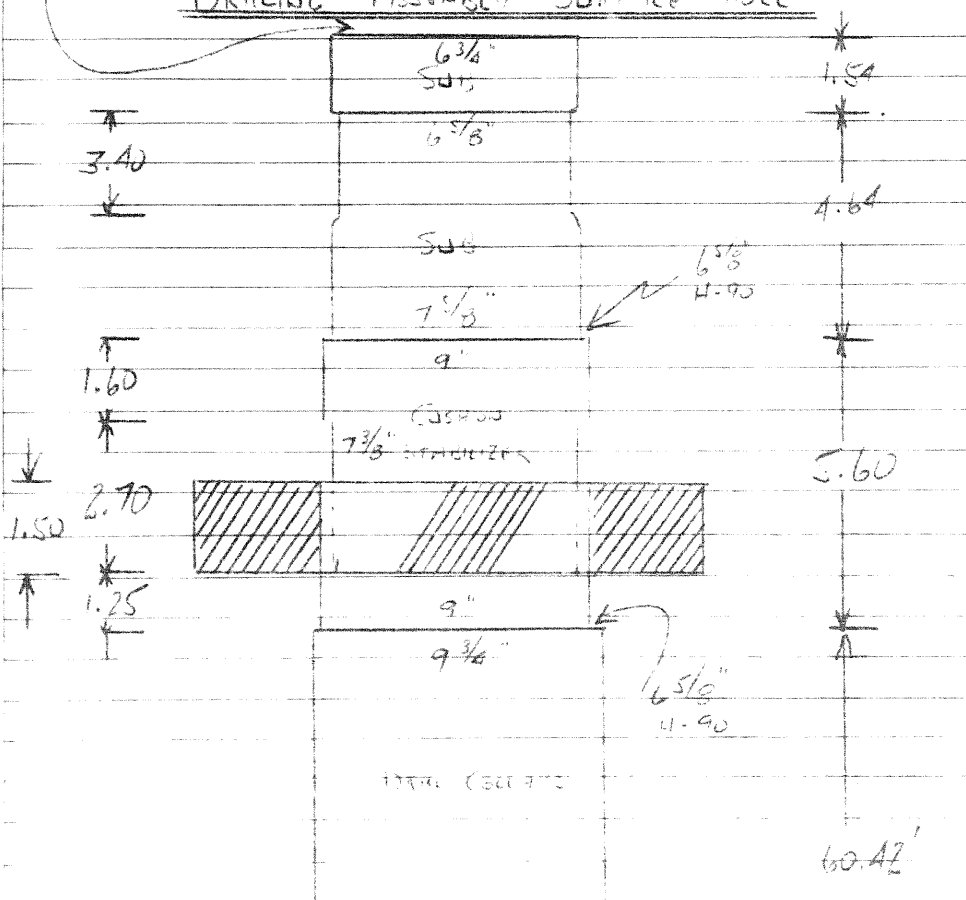 DRILLING ASSEMBLY SURFACE HOLE
6 3/4"
SUB
1.54
6 5/8"
3.40
4.64
SUB
6 5/8"
H-90
7 5/8"
9"
1.60
CUSHION
7 3/8" STABILIZER
5.60
2.70
1.50
1.25
9"
9 3/4"
6 5/8"
H-90
DRILL COLLARS
60.42'